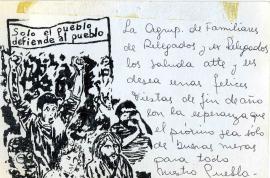 Solo el pueblo
defiende al pueblo
La Agrup. de Familiares
de Relegados y ex Relegados
los saluda atte y les
desea unas felices
Fiestas de fin de año
con la esperanza que
el próximo sea solo
de buenas nuevas
para todo
nuestro Pueblo-